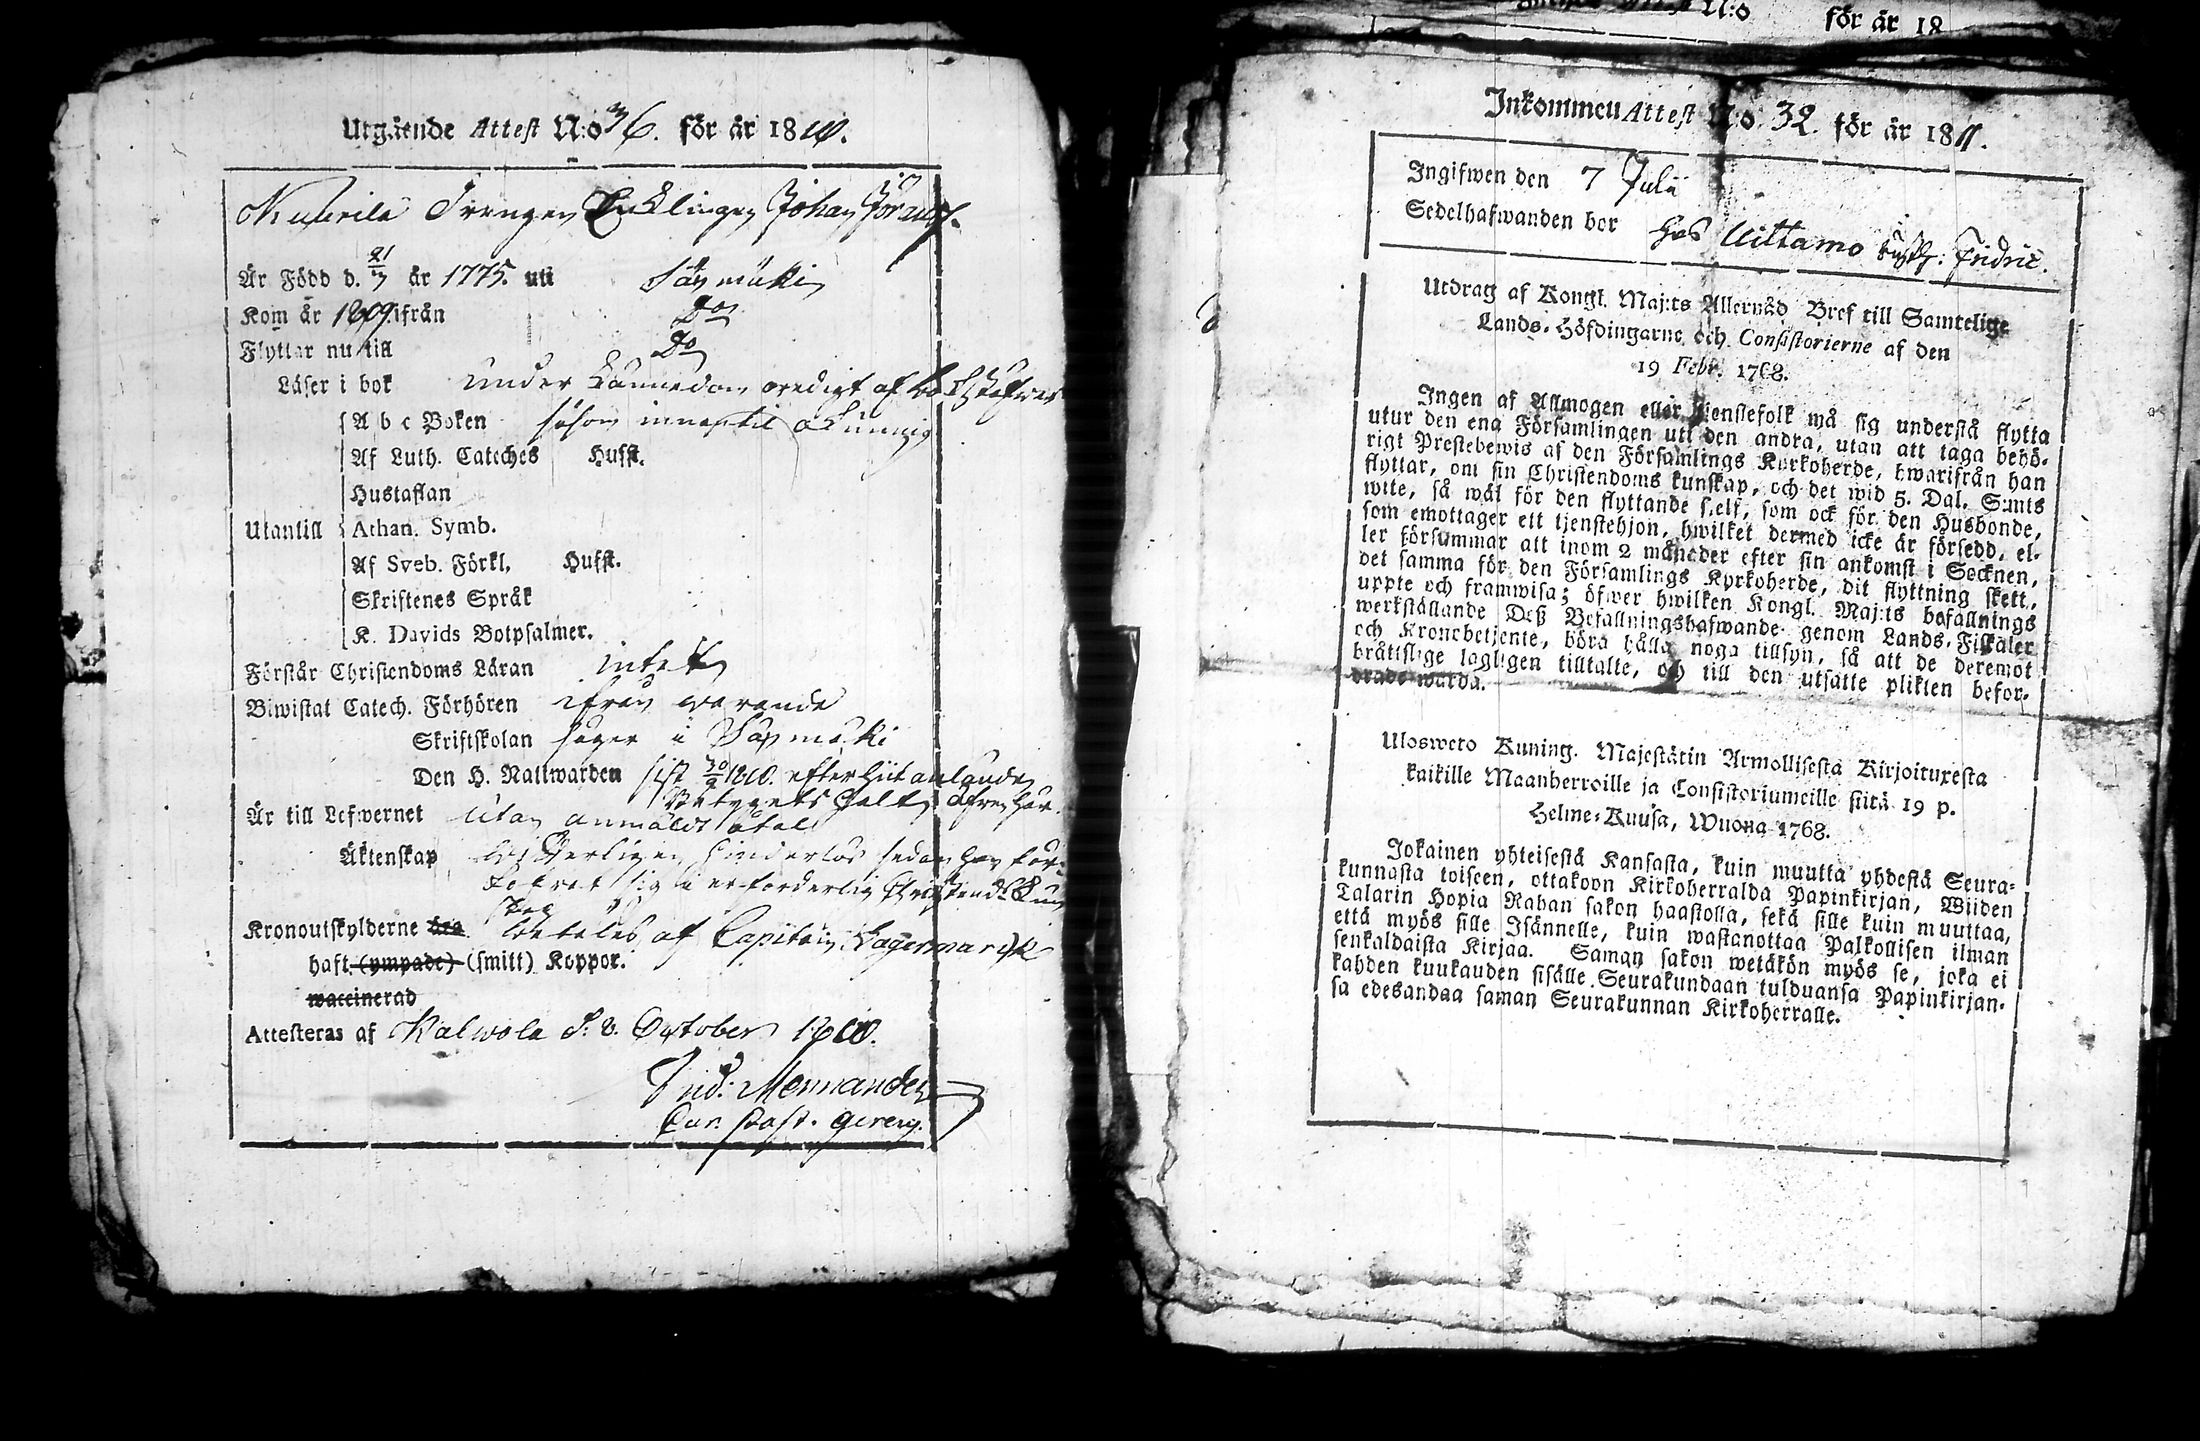 Utgående Attest N:o 36. för år 1810.
Drengen Enklingen Johan Jöransf.
Är Född d. 21/7 år 1775. uti Sääxmäki
Kom år 1809 ifrån Do
Flyttar nu till Do
Läser i bok under kännedom oredigt af bokstäfwer
A b c Boken såsom innantil okunnig
Af Luth. Cateches Husst.
Hustaflan
Utantill Athan. Symb.
Af Sveb. Förkl. Husst.
Skriftenes Språk
K. Davids Botpsalmer.
Förstår Christendoms Läran intet
Biwistat Catech. Förhören ifrån warande
Skriftskolan säger i Sääxmäki
Den H. Nattwarden sist 30/9 1810. efter hit anlände
Betygets
Är till Lefwernet utan anmäldt åtal
Äktenskap hinderlös sedan han för-
kofrat sig i erforderlig Christend: kun
skap
Kronoutskylderne äro betales af Capitain Lagermarck
haft (ympade) (smitt) Koppor.
waccinerad
Attesteras af Kalwola d. 8. October 1810.
Frid: Mennander
Cur. Past. Gerens.
N:o för år 18
Inkommen Attest N:o 32. för år 1811.
Ingifwen den 7 Julii
Sedelhafwanden bor hos Uittamo Fridric.
Utdrag af Kongl. Maj:ts Allernåd Bref till Samtelige
Lands-Höfdingarne och Consistorierne af den
19 Febr. 1768.
Ingen af Allmogen eller tjenstefolk må sig understå flytta
utur den ena Församlingen uti den andra, utan att taga behö-
rigt Prestebewis af den Församlings Kyrkoherde, hwarifrån han
flyttar, om sin Christendoms kunskap, och det wid 5. Dal. S:mts
wite, så wäl för den flyttande sielf, som ock för den Husbonde,
som emottager ett tjenstehjon, hwilket dermed icke är försedd, el-
ler försummar att inom 2 månader efter sin ankomst i Socknen,
det samma för den Församlings Kyrkoherde, dit flyttning skett,
uppte och framwisa; öfwer hwilken Kongl. Maj:ts befallnings
werkställande Deß Befallningshafwande genom Lands-Fiskaler
och Kronobetjente, böra hålla noga tillsyn, så att de deremot
bråttslige lagligen tilltalte, och till den utsatte plikten befor-
drade warda.
Uloswеto Kuning. Majestätin Armollisesta Kirjoituxesta
kaikille Maanherroille ja Consistoriumeille siitä 19 p.
Helme-Kuusa, Wuona 1768.
Jokainen yhteisestä Kansasta, kuin muutta yhdestä Seura-
kunnasta toiseen, ottakoon Kirkoherralda Papinkirjan, Wiiden
Talarin Hopia Rahan sakon haastolla, sekä sille kuin muuttaa,
että myös sille Isännelle, kuin wastanottaa Palkollisen ilman
senkaldaista Kirjaa. Saman sakon wetäkön myös se, joka ei
kahden kuukauden sisälle Seurakundaan tulduansa Papinkirjan-
sa edesandaa saman Seurakunnan Kirkoherralle.